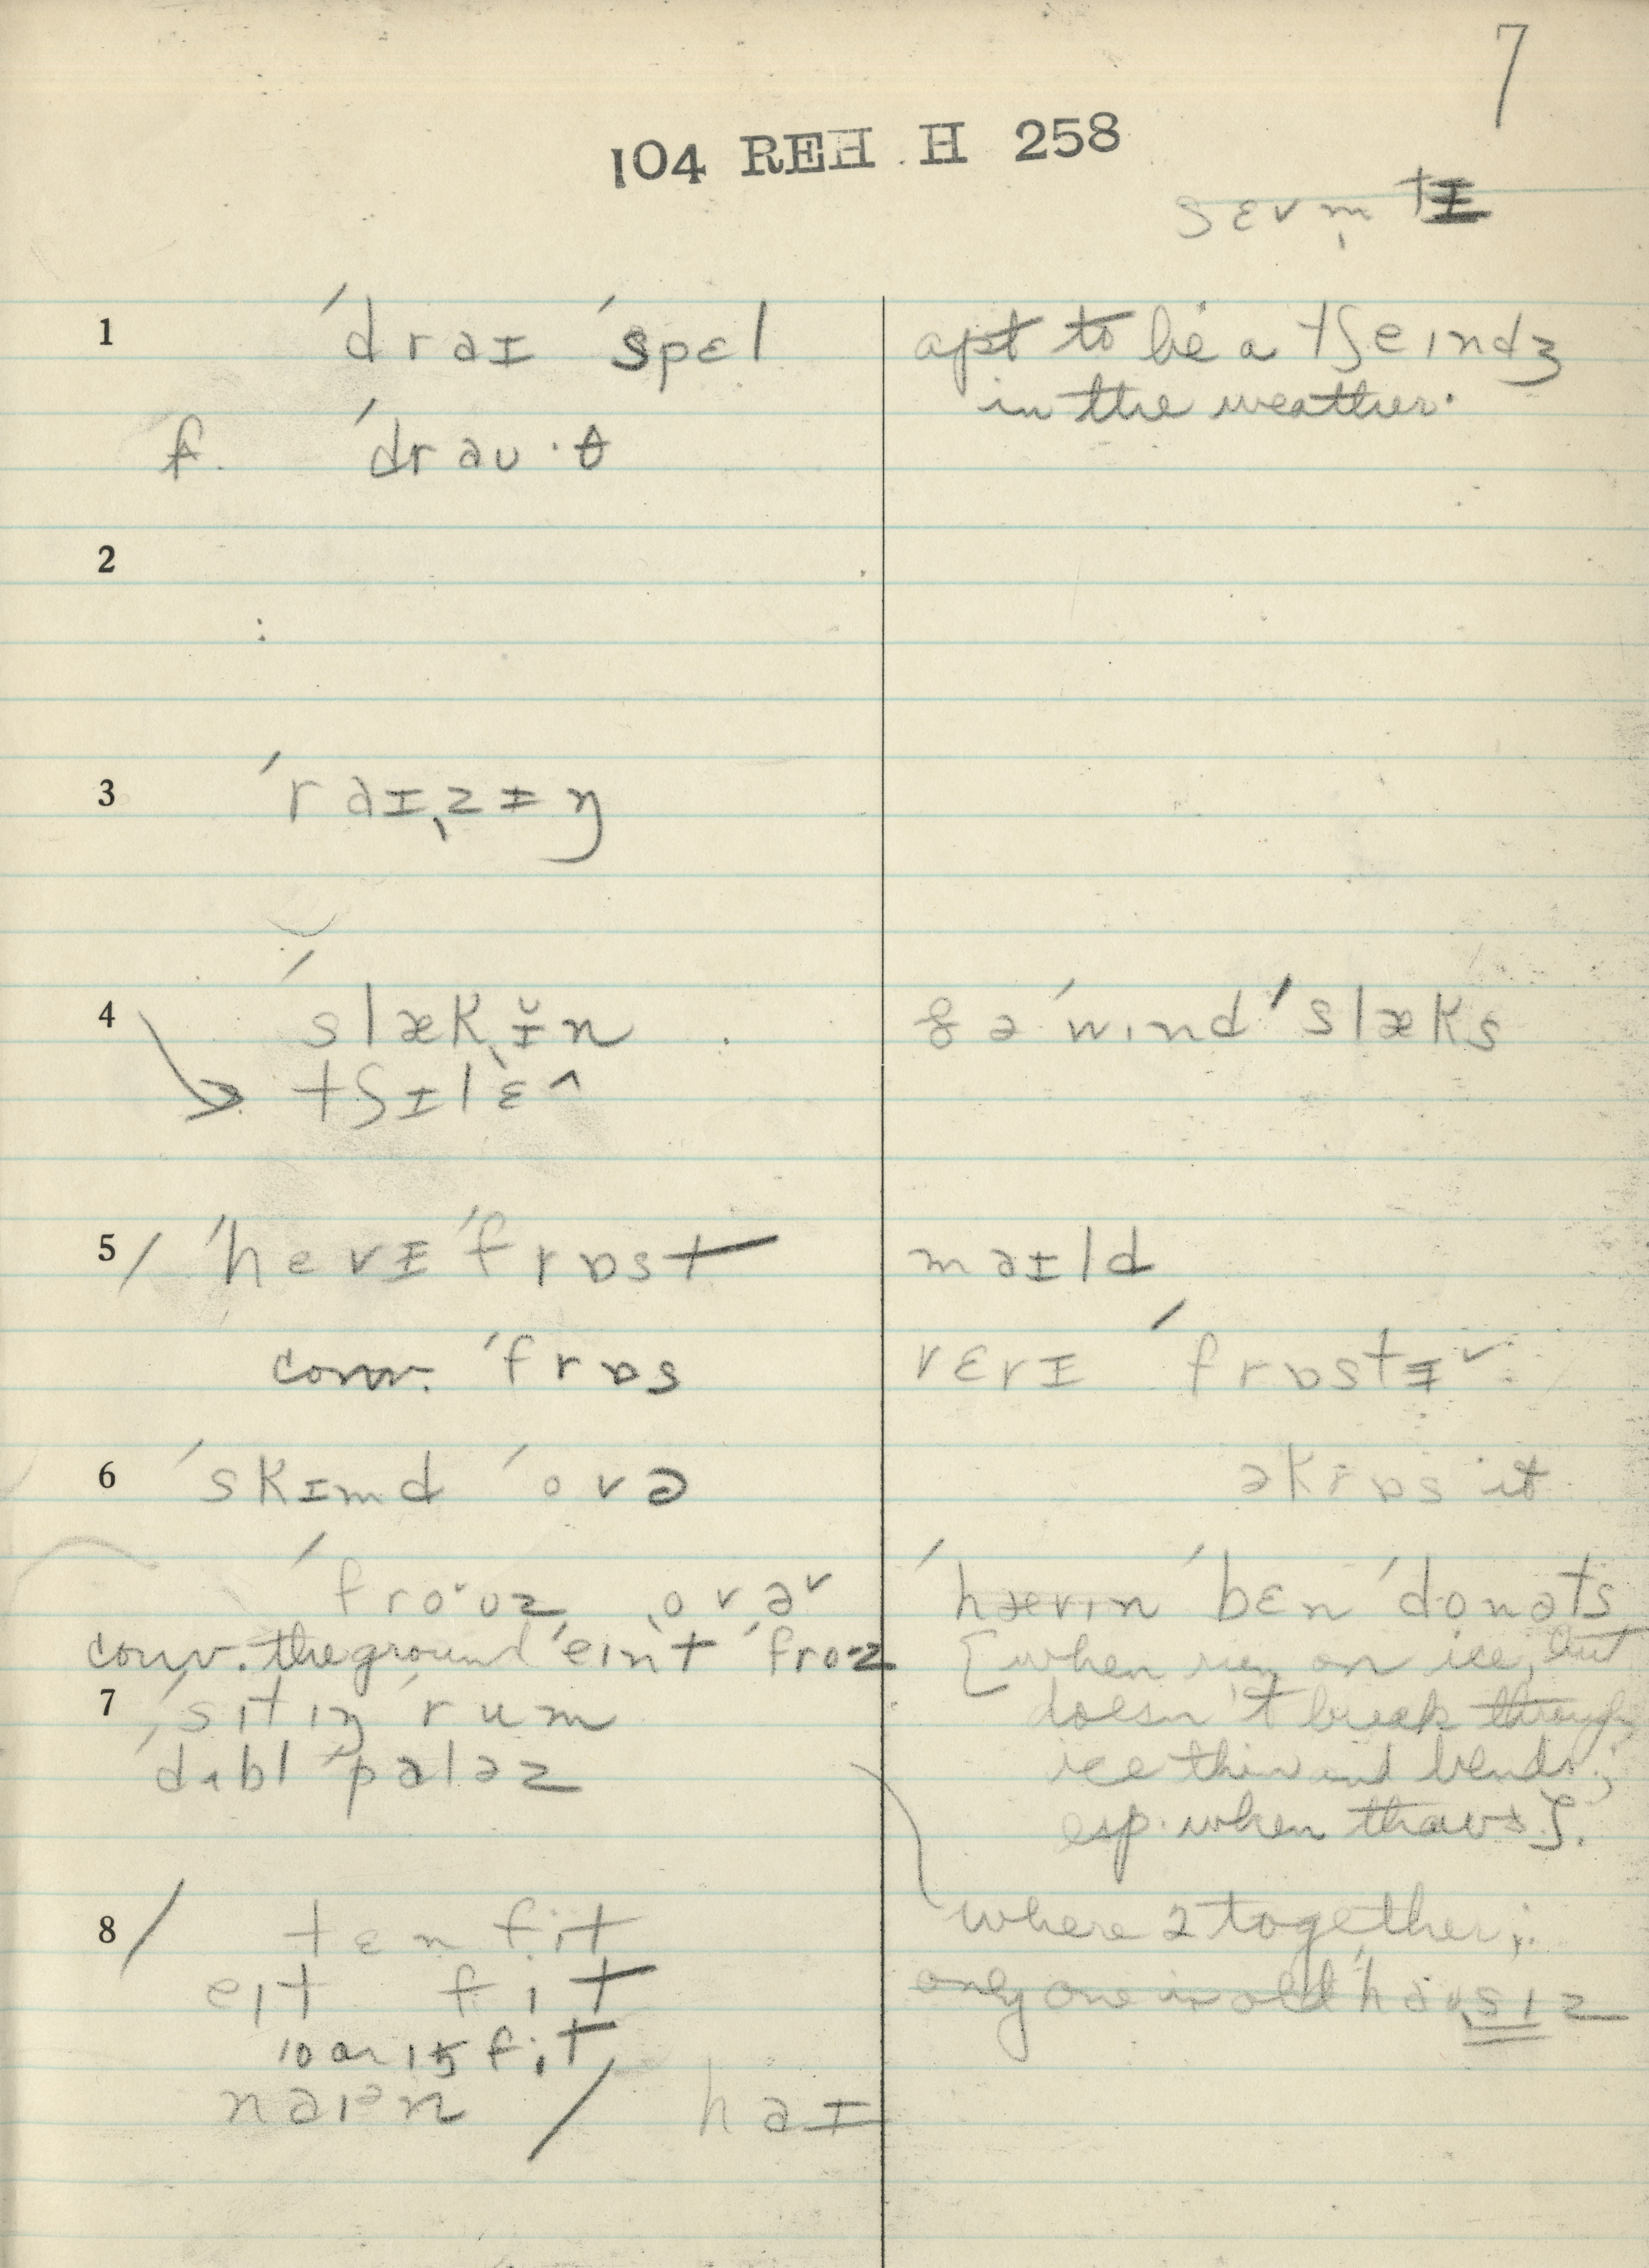 7
104 REH H 258
sɛvm̩tɪ
1 ˈdraɪ ˈspɛl
apt to be a tʃeɪndʒ
in the weather.
f. ˈdraʊ·θ
2
:
3 ˈraɪˌzɪŋ
4 ˈslækˌɪ̆n
& ə ˈwɪnd ˈslæks
tʃɪlɛ^
5 / ˈhevɪ ˈfrɒst
maɪld
conv. ˈfrɒs
vɛrɪ ˈfrɒstɪ˅
6 ˈskɪmd ˈovə
əkrɒs it
ˈfro˅ʊz ˌovə˅
ˈhævɪn ˈbɛn ˈdonəts
conv. the ground ˈeɪnt ˈfroz
[when run on ice, but
7 ˈsɪtɪŋ ˈrum
doesn't break through,
ˈdʌbl ˈpaləz
ice thin and bends;
esp. when thaws].
8 / tɛn fit
where 2 together;
eɪt fit
only one in old ˈhaʊˌsɪz
10 or 15 fit
naɪᵊn / haɪ